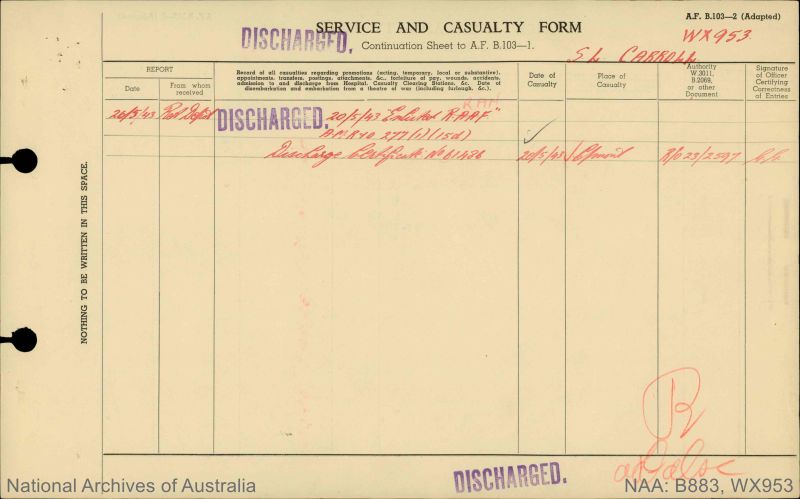 A.F. B.103—2 (Adapted)
SERVICE AND CASUALTY FORM
WX953
DISCHARGED.
Continuation Sheet to A.F. B.103—1.
S L CARROLL
REPORT
Date
From whom received
Record of all casualties regarding promotions (acting, temporary, local or substantive), appointments, transfers, postings, attachments, &c., forfeiture of pay, wounds, accidents, admission to and discharge from Hospital, Casualty Clearing Stations, &c. Date of disembarkation and embarkation from a theatre of war (including furlough, &c.).
Date of Casualty
Place of Casualty
Authority W.3011, B.2069, or other Document
Signature of Officer Certifying Correctness of Entries
26/5/43
DISCHARGED. 20/5/43 Enlisted R.A.A.F"
A.M.R&O 277(1)(15d)
Discharge Certificate No 61486 20/5/43 R/O 23/2597
NOTHING TO BE WRITTEN IN THIS SPACE.
DISCHARGED.
National Archives of Australia
NAA: B883, WX953